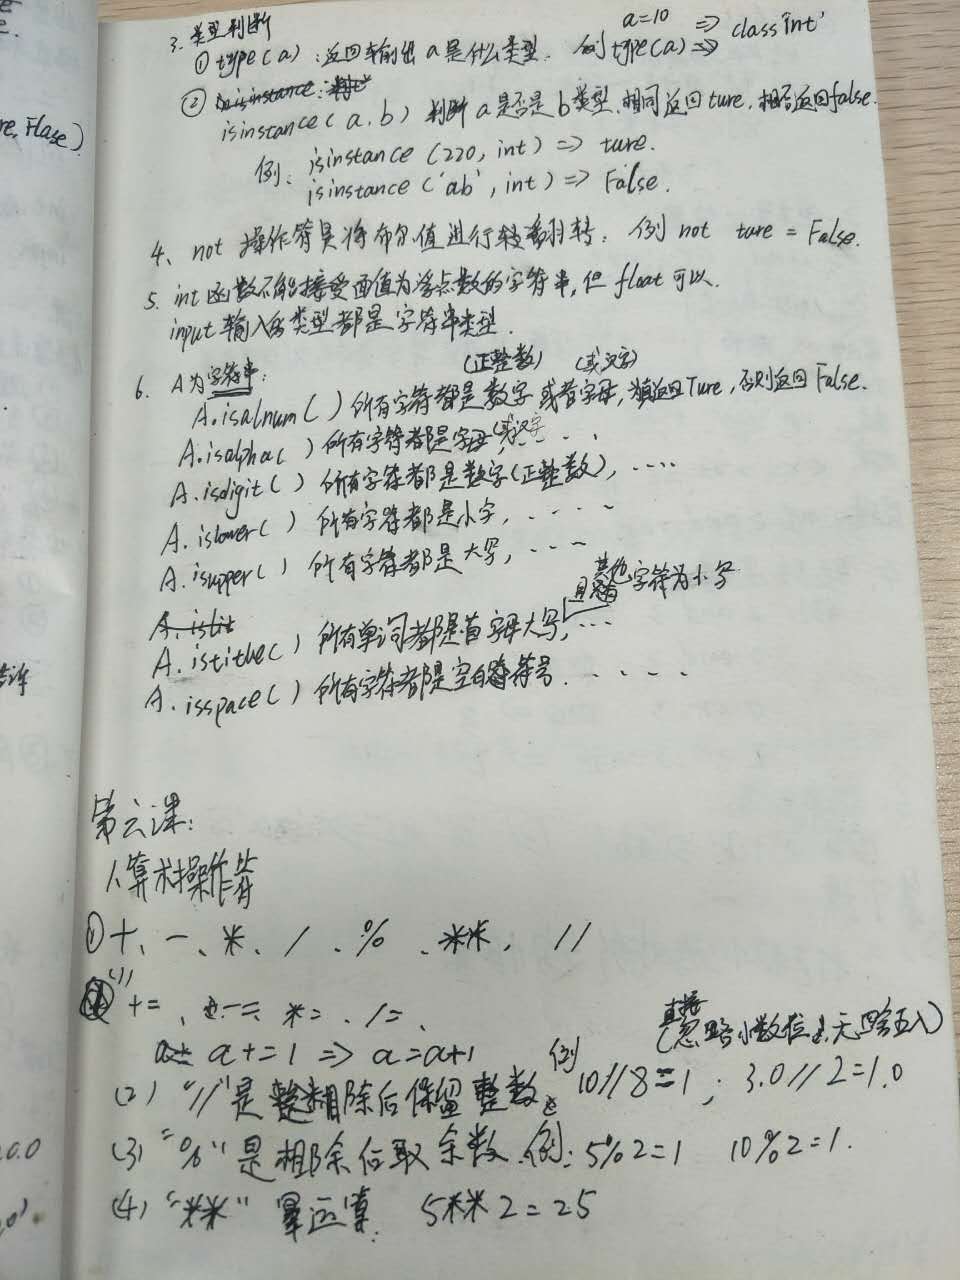 3. 类型判断
① type(a)：返回输出a是什么类型. 例 a=10 type(a) => class'int'
②
isinstance(a,b) 判断a是否是b类型, 相同返回ture, 相否返回false.
例: isinstance(220, int) => ture.
isinstance('ab', int) => False.
4、not 操作符是将布尔值进行翻转. 例 not ture = False.
5. int函数不能接受面值为浮点数的字符串, 但 float 可以.
input 输入的类型都是字符串类型.
6. A为字符串:
(正整数) (或汉字)
A.isalnum( ) 所有字符都是数字或者字母, 返回Ture, 否则返回False.
A.isalpha( ) 所有字符都是字母(或汉字 . . .
A.isdigit( ) 所有字符都是数字(正整数), ....
A.islower( ) 所有字符都是小字, . . . .
A.isupper( ) 所有字符都是大写, . . .
其他字符为小写
A.istitle( ) 所有单词都是首字母大写, ...
A.isspace( ) 所有字符都是空白符号. . . . .
第六课:
1、算术操作符
① +、-、*、/、%、**、//
(1) +=、-=、*=、/=、
a+=1 => a=a+1
(直接忽略小数位, 无四舍五入)
(2) "//"是整相除后保留整数. 例 10//8=1; 3.0//2=1.0
(3) "%"是相除后取余数. 例: 5%2=1 10%2=1.
(4) "**" 幂运算. 5**2=25
re, Flase)
0.0